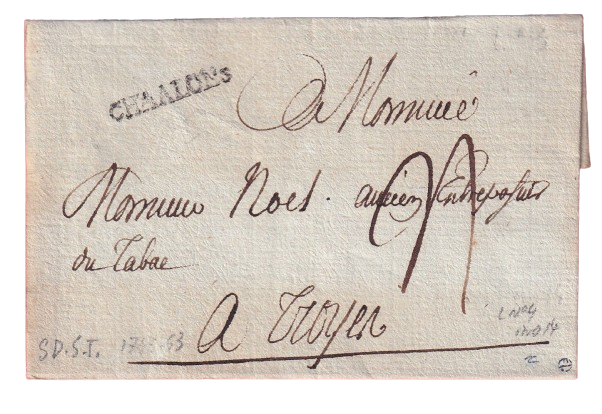 CHAALONS
A Monsieur
Monsieur Noel. ancien Entreposeur
du Tabac
A Troyes
S D. S. T.
L No 4